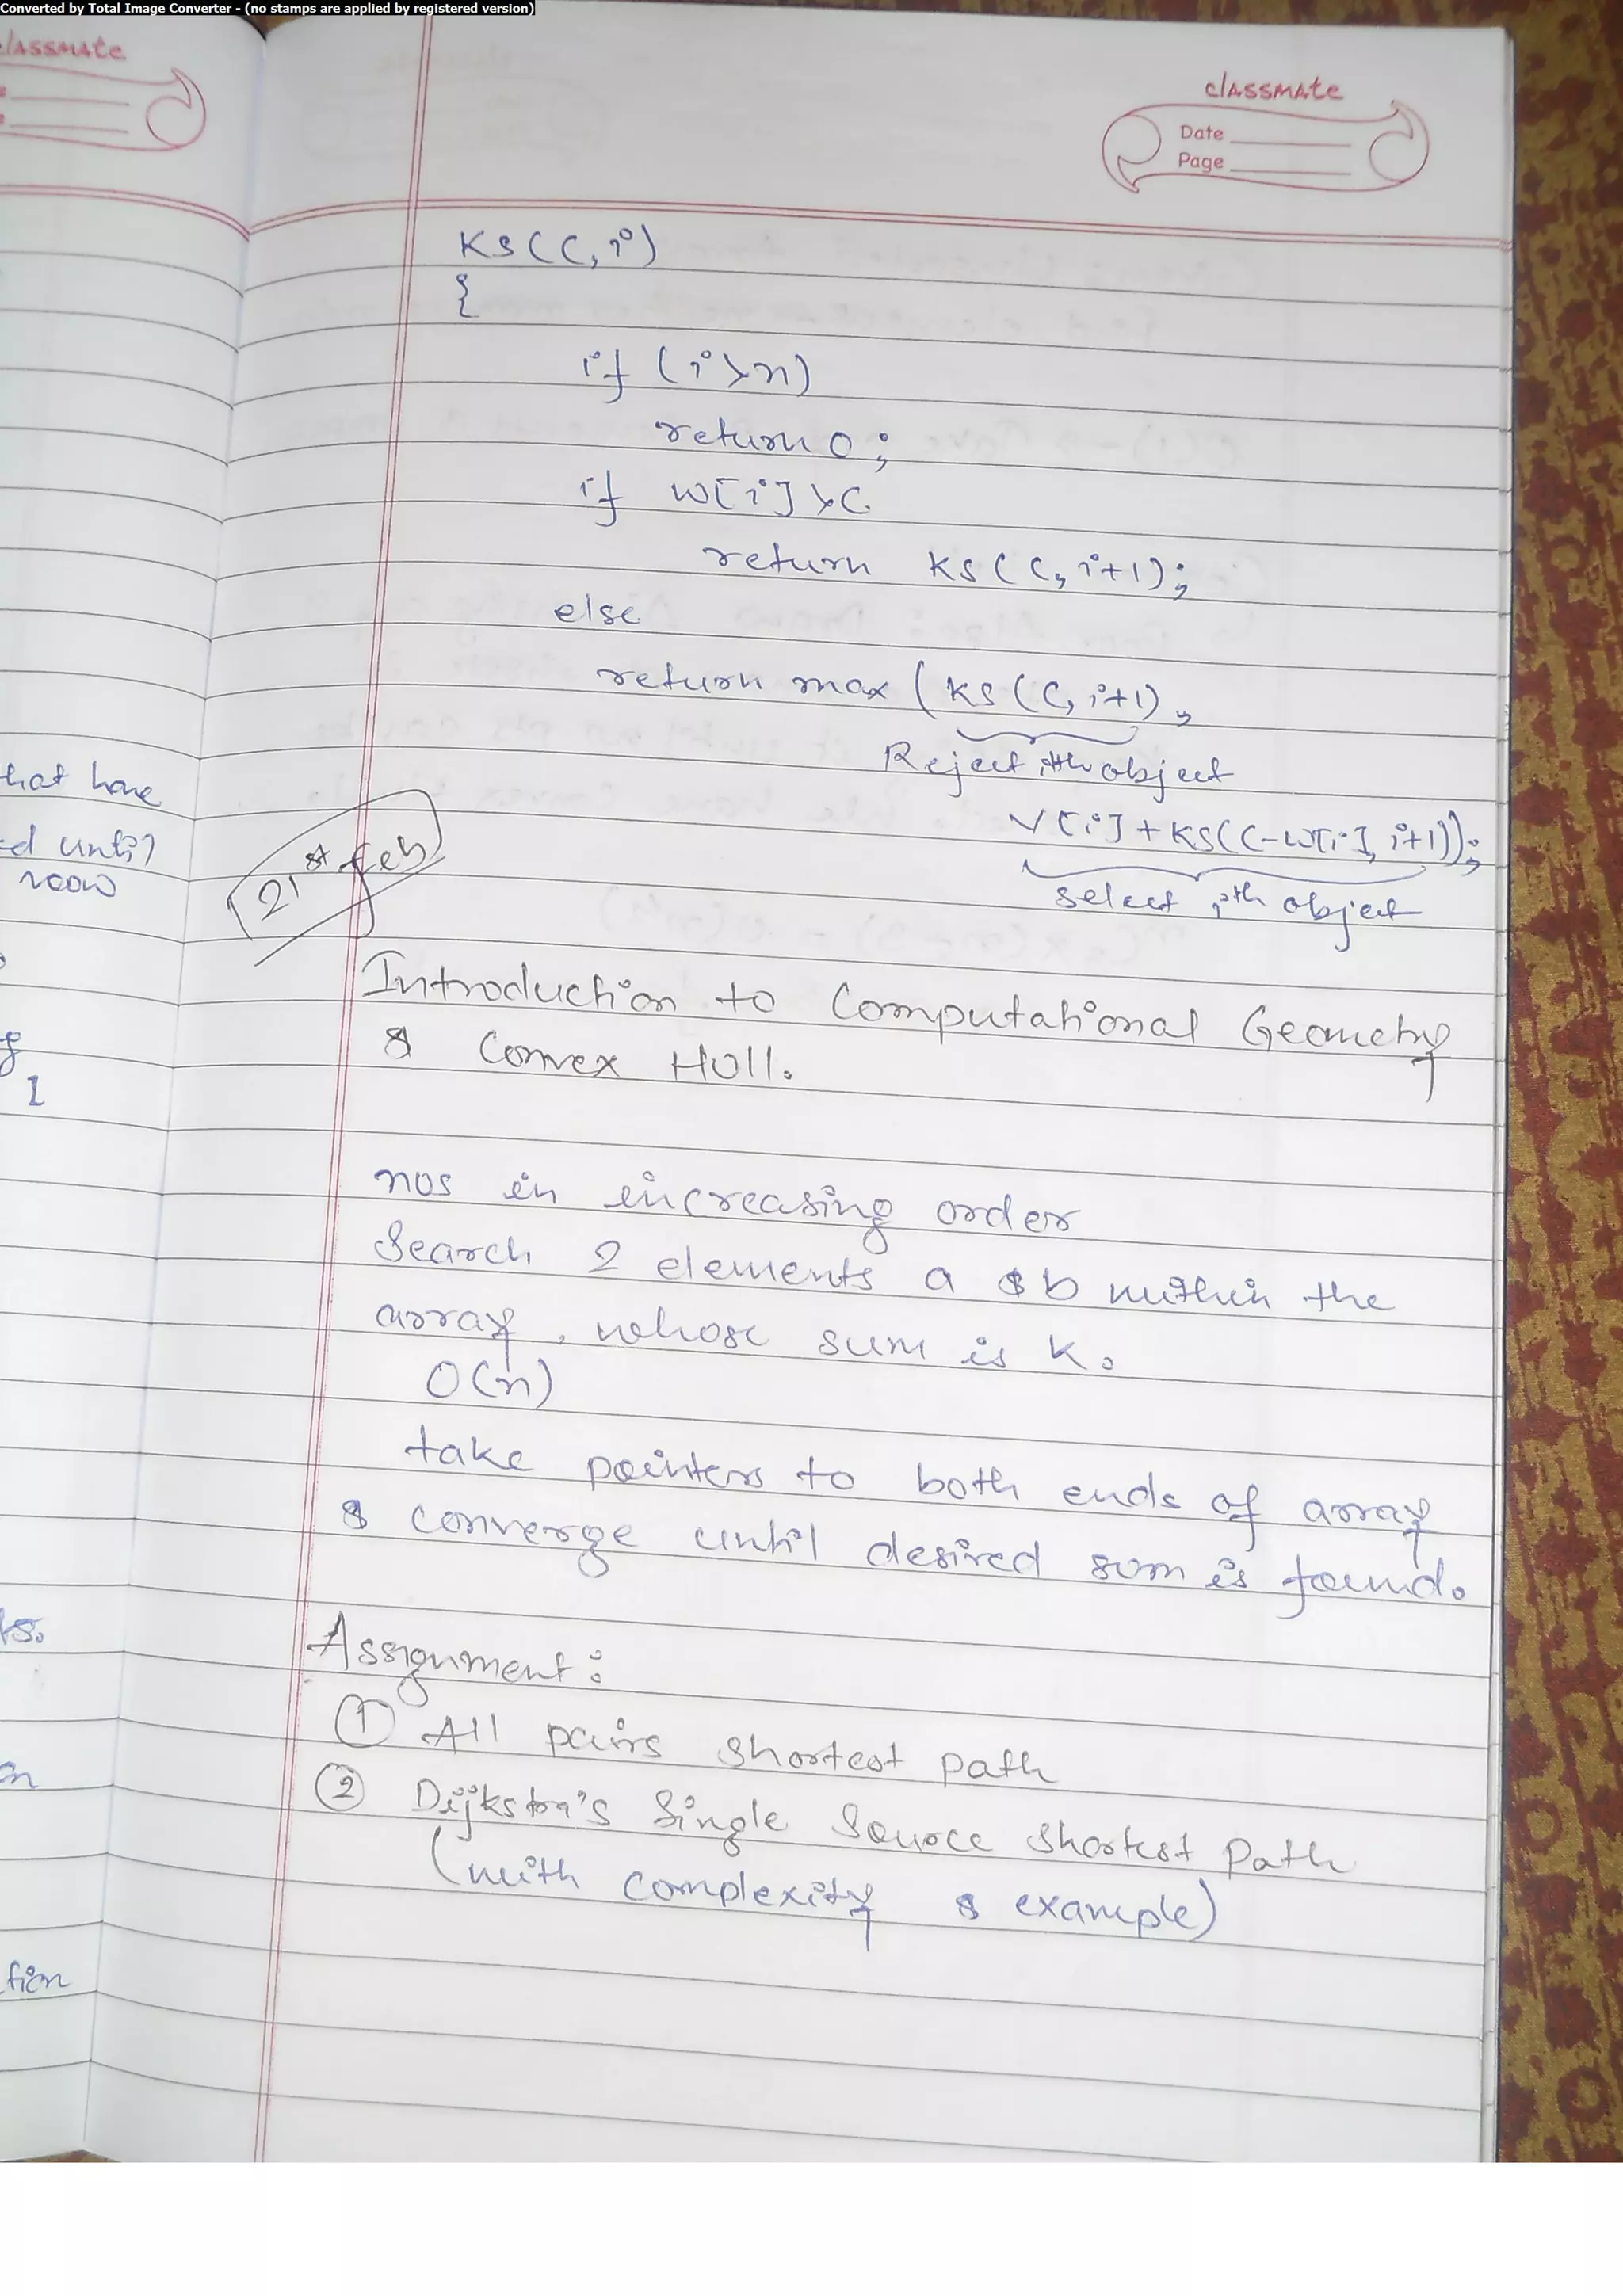 Converted by Total Image Converter - (no stamps are applied by registered version)
classmate
classmate
Date
Page
KS(C, i)
{
if (i>n)
return 0;
if w[i]>C
return KS(C, i+1);
else
return max (KS(C, i+1),
Reject ith object
V[i]+KS(C-W[i], i+1));
select ith object
that have
ed until
room
21st Feb
Introduction to Computational Geometry
& Convex Hull.
1
nos in increasing order
Search 2 elements a & b within the
array, whose sum is K.
O(n)
take pointers to both ends of array
& converge until desired sum is found.
ts.
Assignment:
① All pairs shortest path
② Dijkstra's Single Source Shortest Path
(with complexity & example)
tion